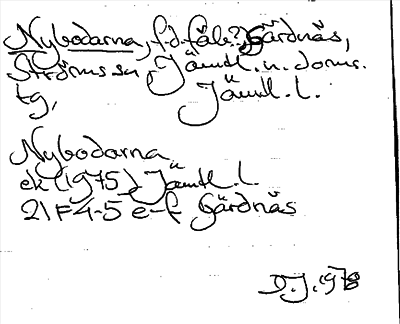 Nybodarna, f.d. fäb.?, Gärdnäs,
Ströms sn, Jämtl. n. doms.
tg, Jämtl. l.
Nybodarna
ek (1975) Jämtl. l
21F4-5 e-f Gärdnäs
D.J. 1978